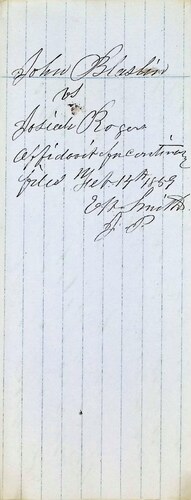 John Blaslin
vs
Josiah Rogers
Affidavit for continu
filed Feb 14th 1859
Smith
J. P.